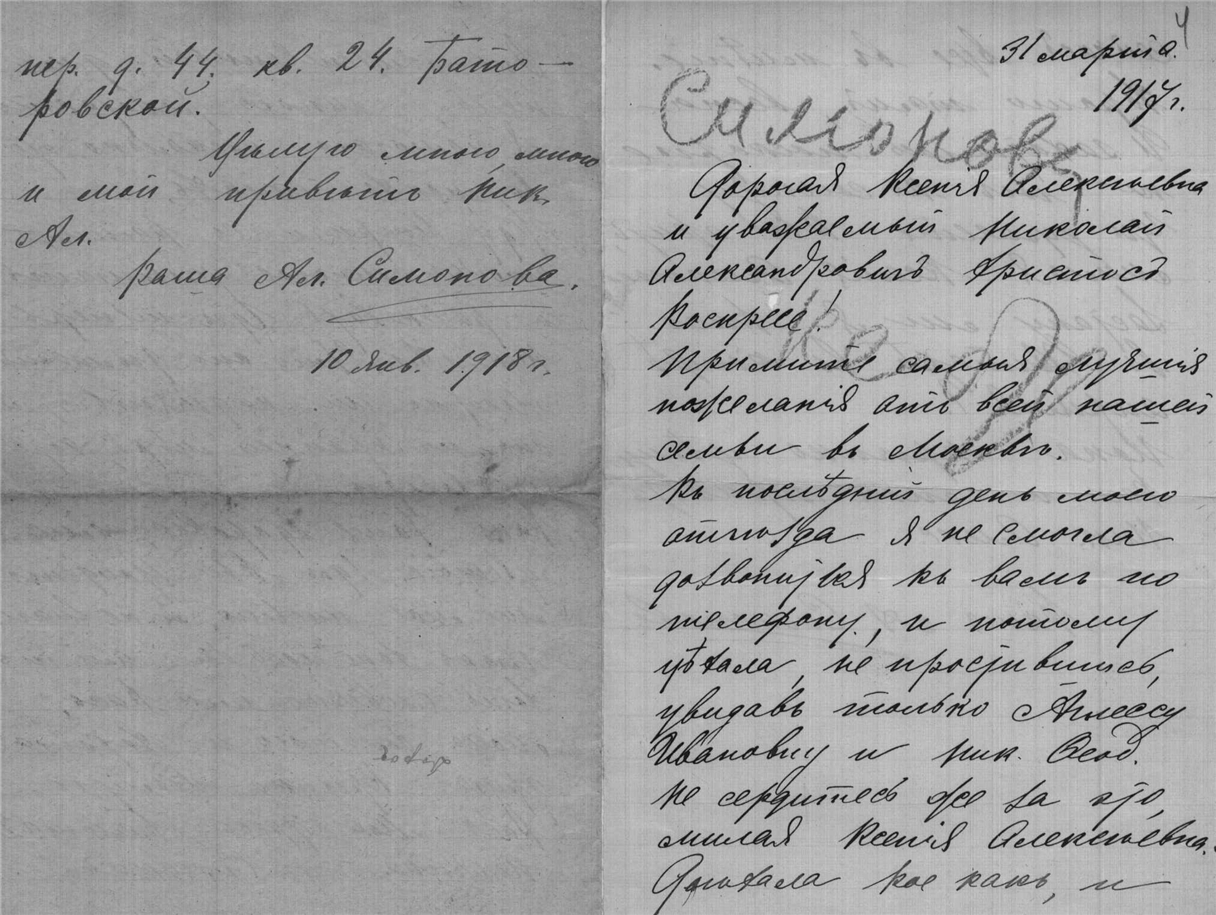 пер. д. 44. кв. 24. Бато-
ровской.
Цѣлую много, много
и мой привѣтъ Ник.
Ал.
Ваша Ал. Симонова.
10 янв. 1918 г.
4
31 марта.
1917 г.
Симонов
Дорогая Ксенія Алексѣевна
и уважаемый Николай
Александровичъ Христосъ
Воскресе!
Примите самыя лучшія
пожеланія отъ всей нашей
семьи въ Москвѣ.
Въ послѣдній день моего
отъѣзда я не смогла
дозвониться къ вамъ по
телефону, и потому
уѣхала, не простившись,
увидавъ только Агнессу
Ивановну и Ник. Ѳеод.
Не сердитесь же за это,
милая Ксенія Алексѣевна.
Доѣхала кое какъ, и